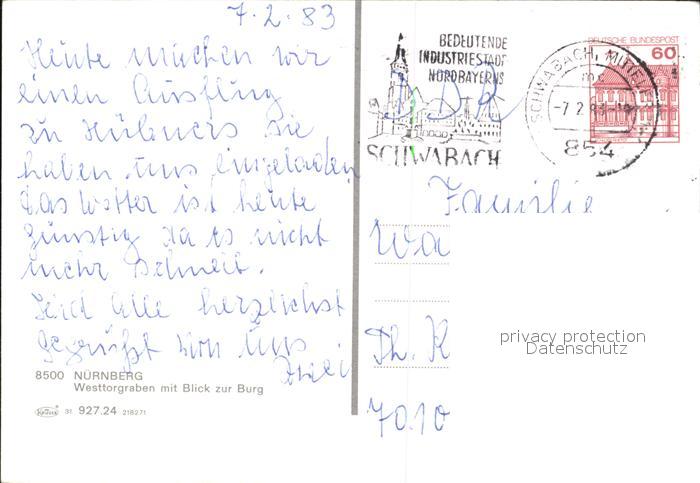 7.2.83
Heute machen wir
einen Ausflug
zu Hübners Sie
haben uns eingeladen
das Wetter ist heute
günstig da es nicht
mehr schneit.
Seid alle herzlichst
gegrüßt von uns
zwei
8500 NÜRNBERG
Westtorgraben mit Blick zur Burg
Krüger 31 927.24 21827 1
BEDEUTENDE
INDUSTRIESTADT
NORDBAYERNS
SCHWABACH
DDR
SCHWABACH, MITTELFR
-7.2.83-18
854
DEUTSCHE BUNDESPOST
60
Familie
Wa
Th. K
7010
privacy protection
Datenschutz